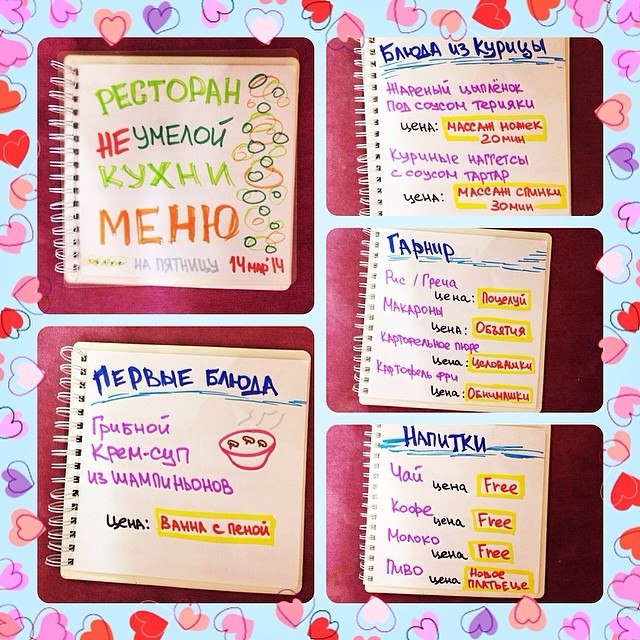 РЕСТОРАН
НЕУМЕЛОЙ
КУХНИ
МЕНЮ
НА ПЯТНИЦУ 14 МАР'14
ПЕРВЫЕ БЛЮДА
ГРИБНОЙ
КРЕМ-СУП
ИЗ ШАМПИНЬОНОВ
ЦЕНА: ВАННА С ПЕНОЙ
БЛЮДА ИЗ КУРИЦЫ
ЖАРЕНЫЙ ЦЫПЛЁНОК
ПОД СОУСОМ ТЕРИЯКИ
ЦЕНА: МАССАЖ НОЖЕК
20 МИН
КУРИНЫЕ НАГГЕТСЫ
С СОУСОМ ТАРТАР
ЦЕНА: МАССАЖ СПИНКИ
30 МИН
ГАРНИР
РИС / ГРЕЧА
ЦЕНА: ПОЦЕЛУЙ
МАКАРОНЫ
ЦЕНА: ОБЪЯТИЯ
КАРТОФЕЛЬНОЕ ПЮРЕ
ЦЕНА: ЦЕЛОВАШКИ
КАРТОФЕЛЬ ФРИ
ЦЕНА: ОБНИМАШКИ
НАПИТКИ
ЧАЙ ЦЕНА Free
КОФЕ ЦЕНА Free
МОЛОКО ЦЕНА Free
ПИВО ЦЕНА НОВОЕ
ПЛАТЬЕЦЕ